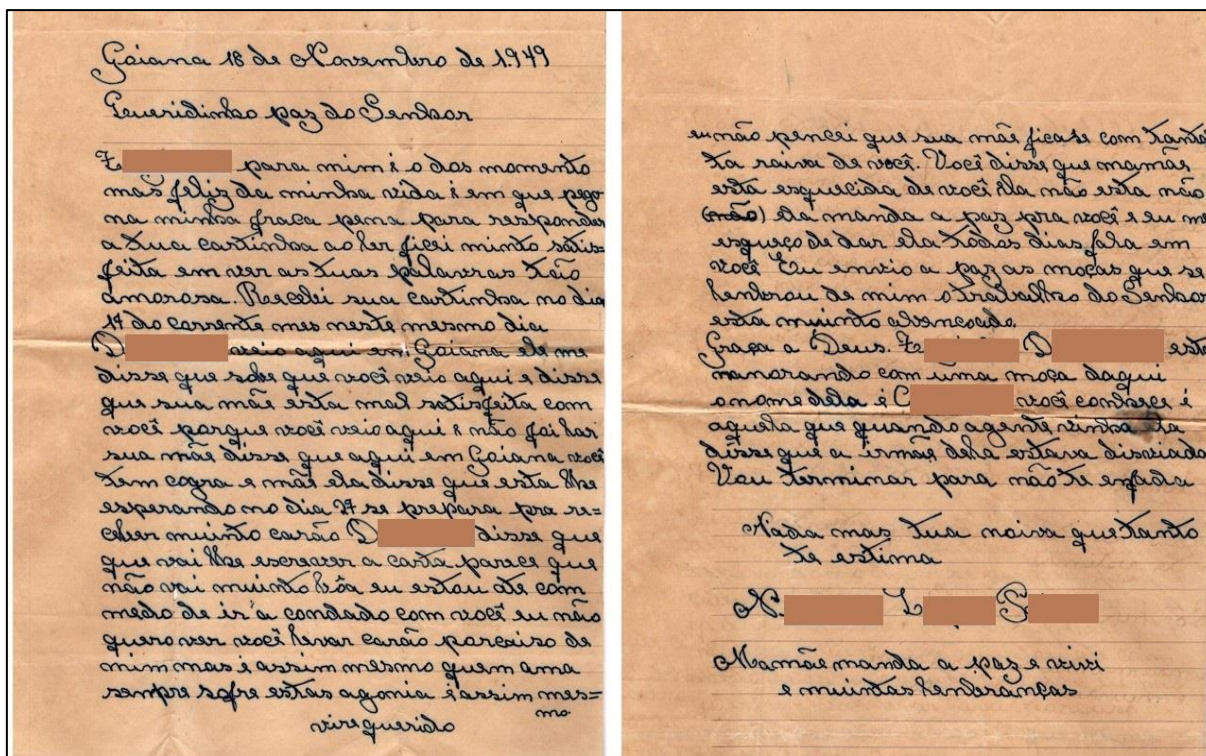 Goiana 18 de Novembro de 1.949
Queridinho paz do Senhor
Ze para mim é o dos momento
mas feliz da minha vida é em que pego
na minha fraca pena para responder
a tua cartinha ao ler ficei minto satis=
feita em ver as tuas palavras tão
amorosa. Recebi sua cartinha no dia
17 do corrente mes neste mesmo dia
D veio aqui em Goiana ele me
disse que sobe que você veio aqui e disse
que sua mãe esta mal satisfeita com
você porque você veio aqui e não foi lar
sua mãe disse que aqui em Goiana você
tem cogra e mãe ela disse que esta lhe
esperando no dia 27 se prepara pra re=
ceber muinto carão D disse que
que vai lhe escrever a carta parece que
não vai muinto bôa eu estou até com
medo de ir a condado com você eu não
quero ver você levar carão porcaiso de
mim mas é assim mesmo quem ama
sempre sofre estas agonia é assim mes=
mo
vire querido
eu não pencei que sua mãe ficase com tanta
ta raiva de você. Você disse que mamãe
esta esquecida de você Ela não esta não
(não) ela manda a paz pra você e eu me
esqueço de dar ela todos dias fala em
você Eu envio a paz as moças que se
lenbrou de mim o trabalho do Senhor
esta muinto abencoado.
Graça a Deus. Ze D esta
namorando com uma moça daqui
o nome dela é C você conhece é
aquela que quando agente vinha ela
disse que a irmãe dela estava disviada
Vou terminar para não te enfada
Nada mas tua noiva que tanto
te estima
N L S
Mamãe manda a paz e vivi
e muintas lenbranças